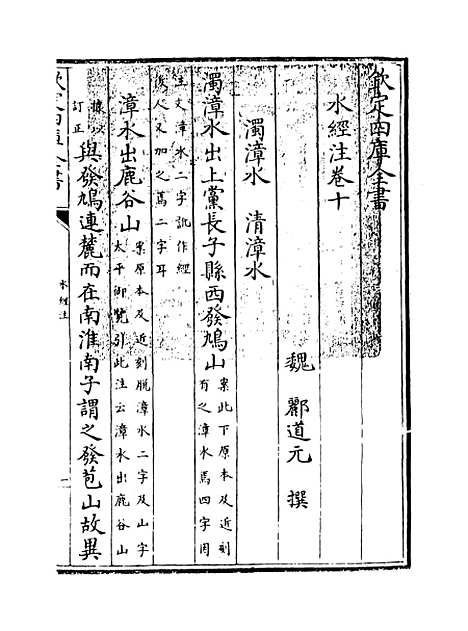 欽定四庫全書
水經注卷十
魏 酈道元 撰
濁漳水 清漳水
濁漳水出上黨長子縣西發鳩山案此下原本及近刻
有之漳水焉四字因
注文漳水二字訛作經
後人又加之焉二字耳
漳水出鹿谷山案原本及近刻脫漳水二字及山字
太平御覽引此注云漳水出鹿谷山
據以
訂正與發鳩連麓而在南淮南子謂之發苞山故異
水經注
一